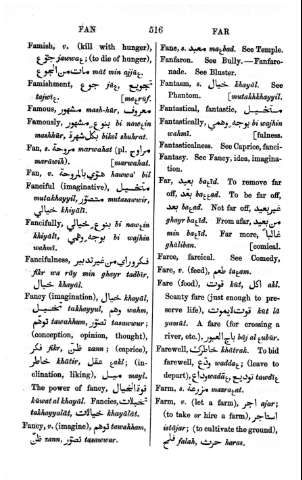 FAN 516 FAR
Famish, v. (kill with hunger),
jauwaɛ; (to die of hunger), جوّع
مات من الجوع māt min ajjūɛ.
Famishment, جوع jūɛ, تجويع
tajwīɛ. [maɛrūf.
Famous, مشهور mash-hūr, معروف
Famously, بنوع مشهور bi nawɛin
mashhūr, بكل شهرة bikol shuhrat.
Fan, s. مروحة marwaḥat (pl. مراوح
marāwiḥ). [marwaḥat.
Fan, v. هوّى بالمروحة hawwa' bil
Fanciful (imaginative), متخيل
mutakhayyil, متصور mutasawwir,
خيالي khiyālī.
Fancifully, بنوع خيالي bi nawɛin
khiyālī, بوجه وهمي bi wajhin
wahmī.
Fancifulness, فكر وراي من غير تدبير
fikr wa rāy min ghayr tadbīr,
خيال khayāl.
Fancy (imagination), خيال khayāl,
تخيل takhayyul, وهم wahm,
توهم tawahhum, تصور tasawwur;
(conception, opinion, thought),
فكر fikr, ظن zann; (caprice),
خاطر khāṭir, عقل ɛakl; (in-
clination, liking), ميل mayl.
The power of fancy, قوة الخيال
kūwat al khayāl. Fancies, تخيلات
takhayyalāt, خيالات khayālāt.
Fancy, v. (imagine), توهم tawahham,
ظن zann, تصور tasawwar.
Fane, s. معبد maɛbad. See Temple.
Fanfaron. See Bully.—Fanfaro-
nade. See Bluster.
Fantasm, s. خيال khayāl. See
Phantom. [mutakhkhayyil.
Fantastical, fantastic, متخيل
Fantastically, بوجه وهمي bi wajhin
wahmī. [fulness.
Fantasticalness. See Caprice, fanci-
Fantasy. See Fancy, idea, imagina-
tion.
Far, بعيد baɛīd. To remove far
off, بعد baɛɛad. To be far off,
بعد baɛad. Not far off, غير بعيد
ghayr baɛīd. From afar, من بعيد
min baɛīd. Far more, غالبا
ghāliban. [comical.
Farce, farcical. See Comedy,
Fare, v. (feed), طعم ṭaɛam.
Fare (food), قوت kūt, اكل akl.
Scanty fare (just enough to pre-
serve life), قوت لا يموت kūt lā
yamūt. A fare (for crossing a
river, etc.), باج العبور bāj al ɛubūr.
Farewell, خاطرك khāṭrak. To bid
farewell, ودع waddaɛ; (leave to
depart), وداع wadāɛ, توديع tawdīɛ.
Farm, s. مزرعة mazraɛat.
Farm, v. (let a farm), اجر ajar;
(to take or hire a farm), استاجر
istājar; (to cultivate the ground),
فلح falaḥ, حرث haras.